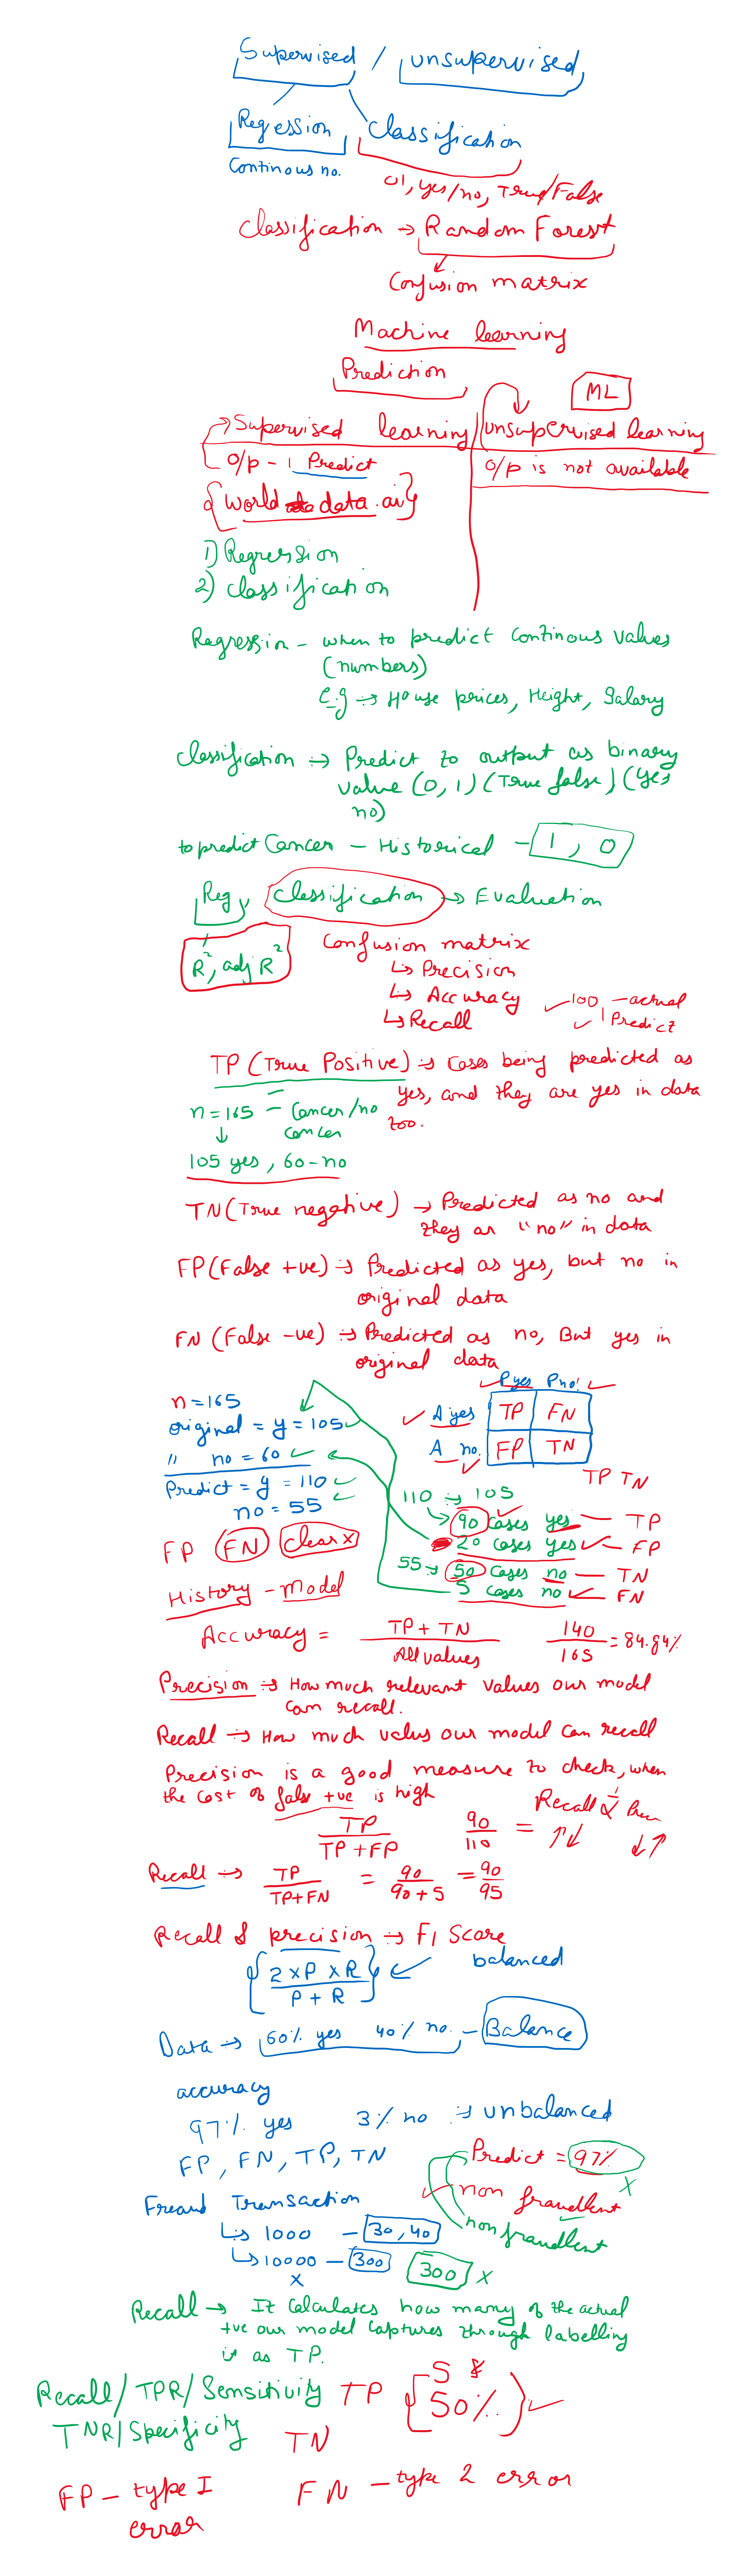 Supervised / unsupervised
Regession Classification
Continous no.
01, yes/no, True/False
Classification → Random Forest
Confusion matrix
Machine learning
Prediction
ML
Supervised learning / unsupervised learning
O/p - 1 Predict
O/p is not available
{World data.ai}
1) Regression
2) classification
Regression - when to predict continous values
(numbers)
e.g → House prices, Height, Salary
Classification → Predict to output as binary
value (0, 1) (True false) (yes
no)
to predict Cancer - Historical - 1, 0
Reg, Classification → Evaluation
R², adj R²
Confusion matrix
↳ Precision
↳ Accuracy
↳ Recall
100 - actual
1 Predict
TP (True Positive) → Cases being predicted as
yes, and they are yes in data
too.
n=165 - Cancer/no
cancer
↓
105 yes, 60-no
TN (True negative) → Predicted as no and
they ar "no" in data
FP (False +ve) → Predicted as yes, but no in
original data
FN (False -ve) → Predicted as no, But yes in
original data
Pyes Pno
A yes TP FN
A no. FP TN
TP TN
n=165
original = y = 105
" no = 60
Predict = y = 110
no = 55
110 → 105
90 Cases yes - TP
20 cases yes - FP
55 → 50 cases no - TN
5 cases no - FN
FP FN Clear x
History - Model
Accuracy = TP + TN / All values 140 / 165 = 84.84%
Precision → How much relevant values our model
can recall.
Recall → How much values our model can recall
Precision is a good measure to check, when
the cost of fals +ve is high
TP / TP + FP 90 / 110 = Recall
↑↓ ↓↑
Recall → TP / TP+FN = 90 / 90+5 = 90 / 95
Recall & precision → F1 Score
{2 x P x R / P + R} balanced
Data → 60% yes 40% no. - Balance
accuracy
97% yes 3% no → unbalanced
FP, FN, TP, TN
Predict = 97%
x
non fraudlent
non fraudlent
Freaud Transaction
↳ 1000 - 30, 40
↳ 10000 - 300
x
300 x
Recall → It Calculates how many of the actual
+ve our model captures through labelling
it as TP.
Recall / TPR / Sensitivity TP {50%}
TNR / Specificity TN
FP - type I
error
FN - type 2 error